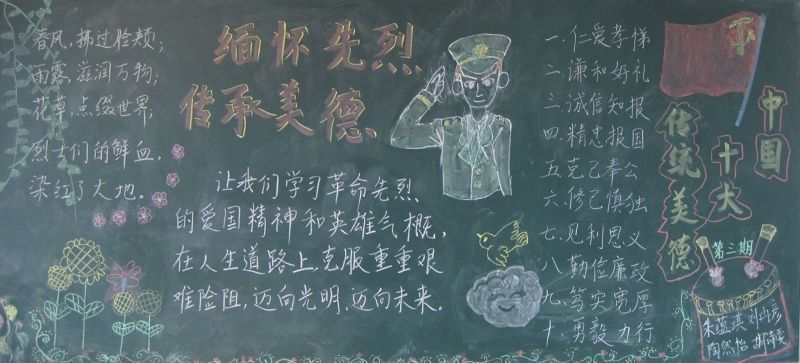 春风,拂过脸颊;
雨露,滋润万物;
花草,点缀世界,
烈士们的鲜血,
染红了大地。
缅怀先烈
传承美德
让我们学习革命先烈
的爱国精神和英雄气概,
在人生道路上,克服重重艰
难险阻,迈向光明,迈向未来。
一.仁爱孝悌
二.谦和好礼
三.诚信知报
四.精忠报国
五.克己奉公
六.修己慎独
七.见利思义
八.勤俭廉政
九.笃实宽厚
十.勇毅力行
中国
十大
传统美德
第三期